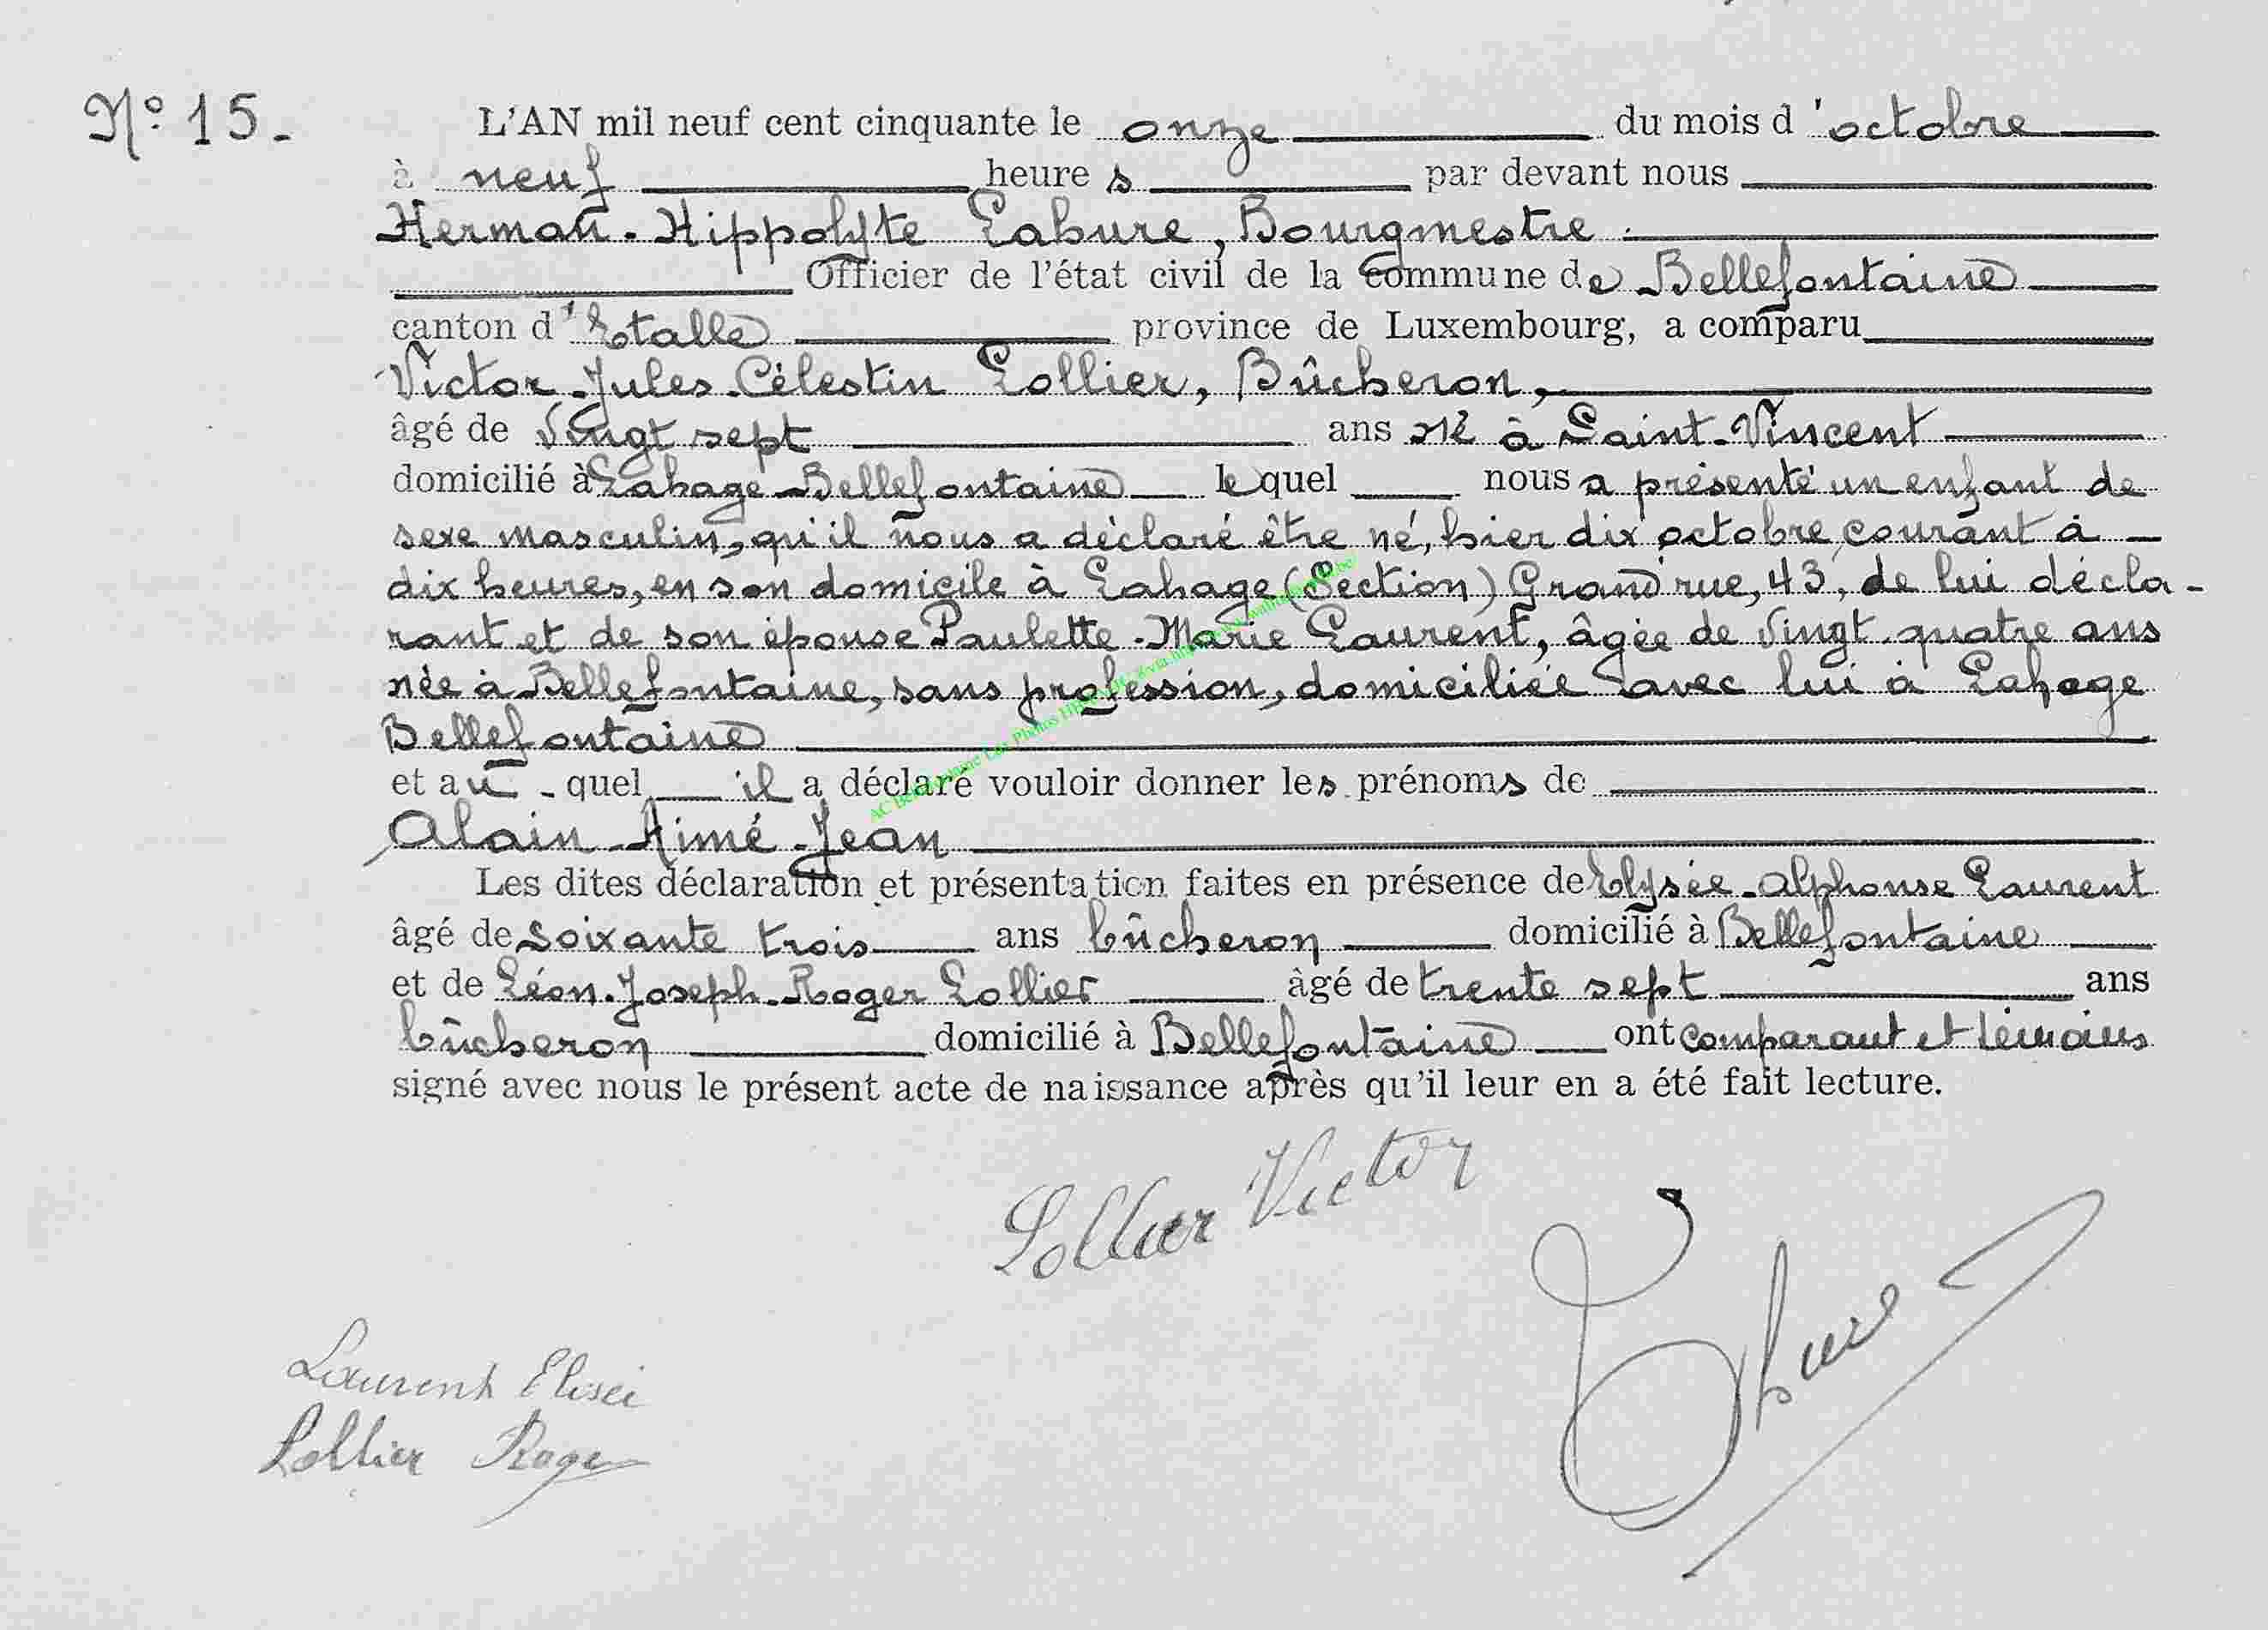 N° 15.
L'AN mil neuf cent cinquante le onze du mois d'octobre
à neuf heures par devant nous
Herman-Hippolyte Lahure, Bourgmestre.
Officier de l'état civil de la commune de Bellefontaine
canton d'Etalle province de Luxembourg, a comparu
Victor-Jules-Célestin Lollier, Bûcheron,
âgé de vingt sept ans né à Saint-Vincent
domicilié à Lahage-Bellefontaine lequel nous a présenté un enfant de
sexe masculin, qu'il nous a déclaré être né, hier dix octobre courant à
dix heures, en son domicile à Lahage (Section) Grand'rue, 43, de lui décla-
rant et de son épouse Paulette-Marie Laurent, âgée de vingt-quatre ans
née à Bellefontaine, sans profession, domiciliée avec lui à Lahage
Bellefontaine
et au-quel il a déclaré vouloir donner les prénoms de
Alain-Aimé-Jean
Les dites déclaration et présentation faites en présence de Elysée-Alphonse Laurent
âgé de soixante trois ans bûcheron domicilié à Bellefontaine
et de Léon-Joseph-Roger Lollier âgé de trente sept ans
bûcheron domicilié à Bellefontaine ont comparant et témoins
signé avec nous le présent acte de naissance après qu'il leur en a été fait lecture.
Lollier Victor
Laurent Elisée
Lollier Roger